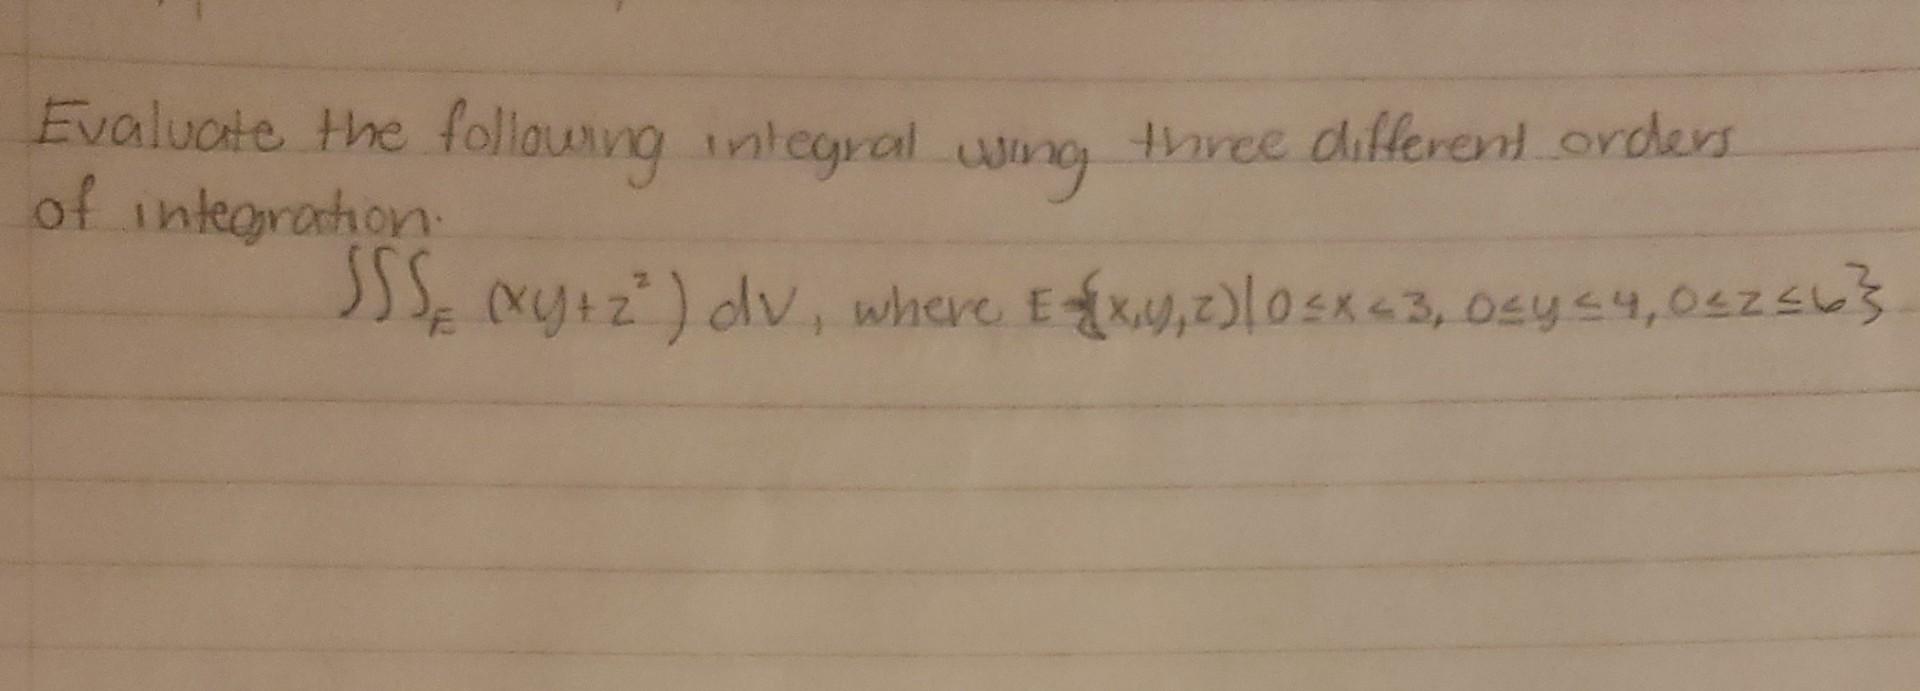 Evaluate the following integral using three different orders
of integration.
∫∫∫_E (xy+z²) dV, where E={(x,y,z)|0≤x≤3, 0≤y≤4, 0≤z≤6}